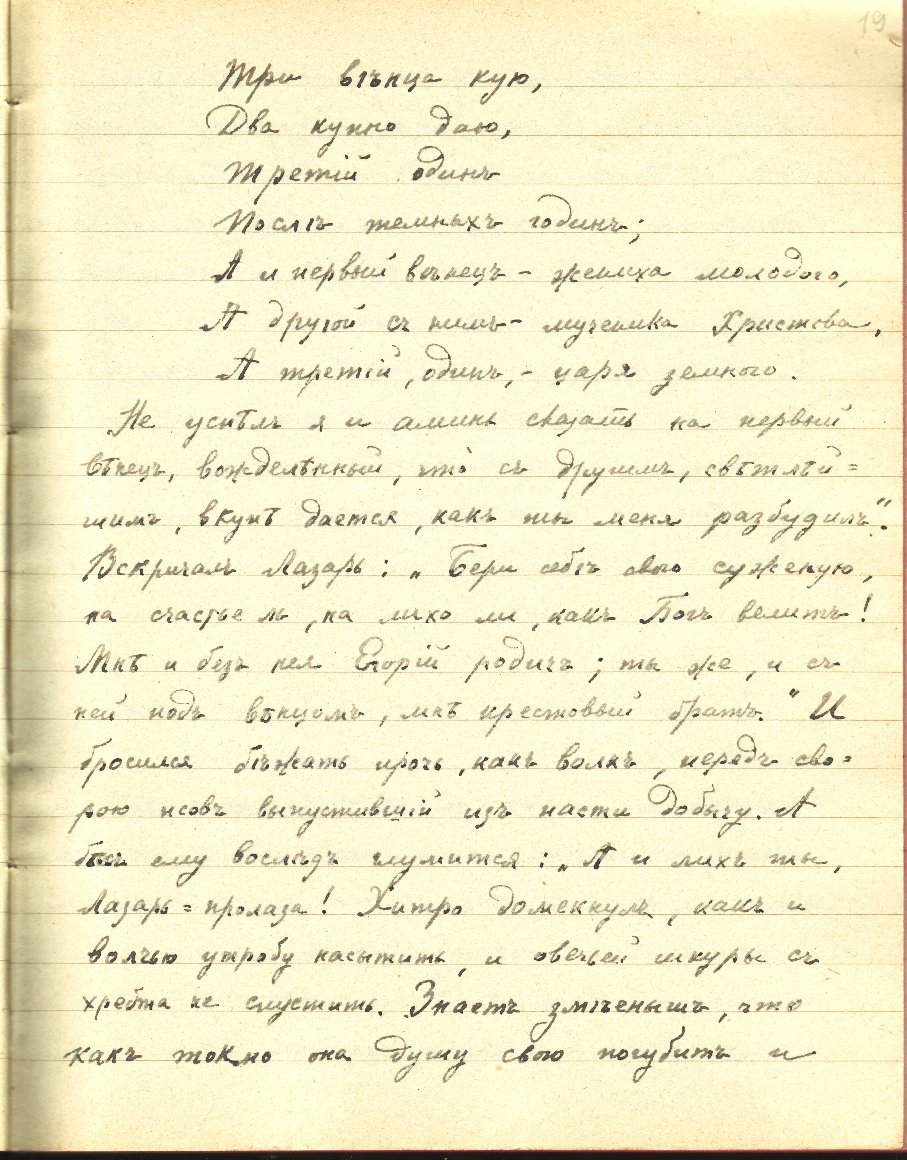 19
Три вѣнца кую,
Два купно даю,
Третій одинъ
Послѣ темныхъ годинъ;
А и первый вѣнецъ – жениха молодого,
А другой съ нимъ – мученика Христова,
А третій, одинъ, – царя земного.
Не успѣлъ я и аминь сказать на первый
вѣнецъ, вожделѣнный, что съ другимъ, свѣтлѣй=
шимъ, вкупѣ дается, какъ ты меня разбудилъ".
Вскричалъ Лазарь: „Бери себѣ свою суженую,
на счастье ль, на лихо ли, какъ Богъ велитъ!
Мнѣ и безъ нея Егорій родичъ; ты же, и съ
ней подъ вѣнцомъ, мнѣ крестовый братъ." И
бросился бѣжать прочь, какъ волкъ, передъ сво=
рою псовъ выпустившій изъ пасти добычу. А
бѣсъ ему вослѣдъ глумится: „А и лихъ ты,
Лазарь=пролаза! Хитро домекнулъ, какъ и
волчью утробу насытить, и овечьей шкуры съ
хребта не спустить. Знаетъ змѣенышъ, что
какъ токмо она душу свою погубитъ и